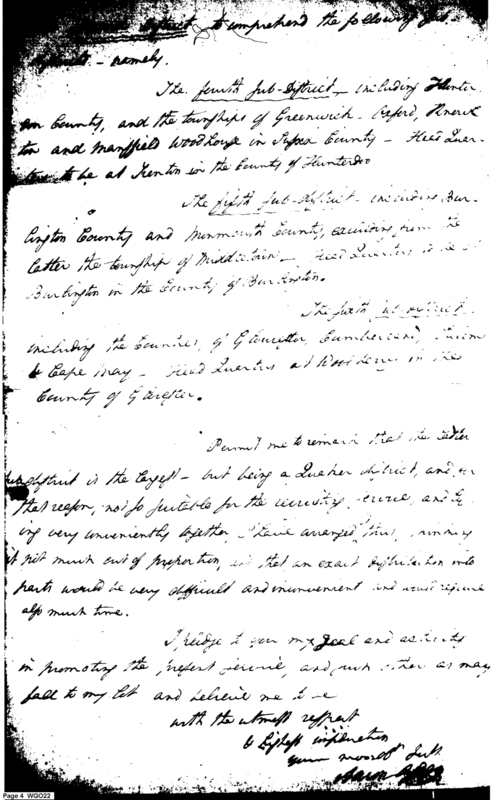 District to comprehend the following Sub-
Districts - namely.
The fourth Sub-District - including Hunter
don County, and the townships of Greenwich - Oxford, Knowl
ton and Mansfield Woodhouse in Sussex County - Head Quar-
ters to be at Trenton in the County of Hunterdon
The fifth Sub-District - including Bur-
lington County and Monmouth County, excluding from the
latter the township of Middletown - Head Quarters to be at
Burlington in the County of Burlington.
The sixth Sub-District
including the Counties of Gloucester, Cumberland, Salem
& Cape May - Head Quarters at Woodbury in the
County of Glocester.
Permit me to remark that the latter
Subdistrict is the largest - but being a Quaker district, and for
that reason, not so suitable for the recruiting service, and be
ing very conveniently together, I have arranged thus,
it not much out of proportion, and that an exact distribution into
parts would be very difficult and inconvenient and would require
also much time.
I pledge to you my zeal and activity
in promoting the present service, and such other as may
fall to my lot and believe me to be
with the utmost respect
& highest consideration
your most obt Sert
Aaron Ogden
Page 4 WGO22